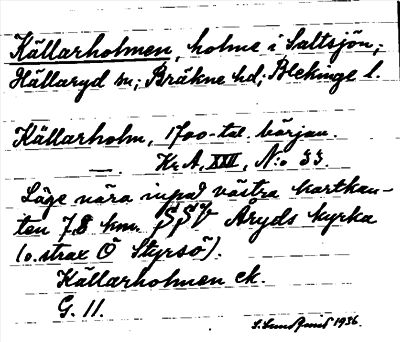 Källarholmen, holme i Saltsjön,
Hällaryd sn; Bräkne hd; Blekinge l.
Källarholm, 1700-tal. början.
Kr. A, XXII, N:o 33.
Läge nära inpå västra kartkan-
ten 7.8 km. SSV Åryds kyrka
(o. strax Ö Styrsö).
Källarholmen ek.
G. 11.
1936.